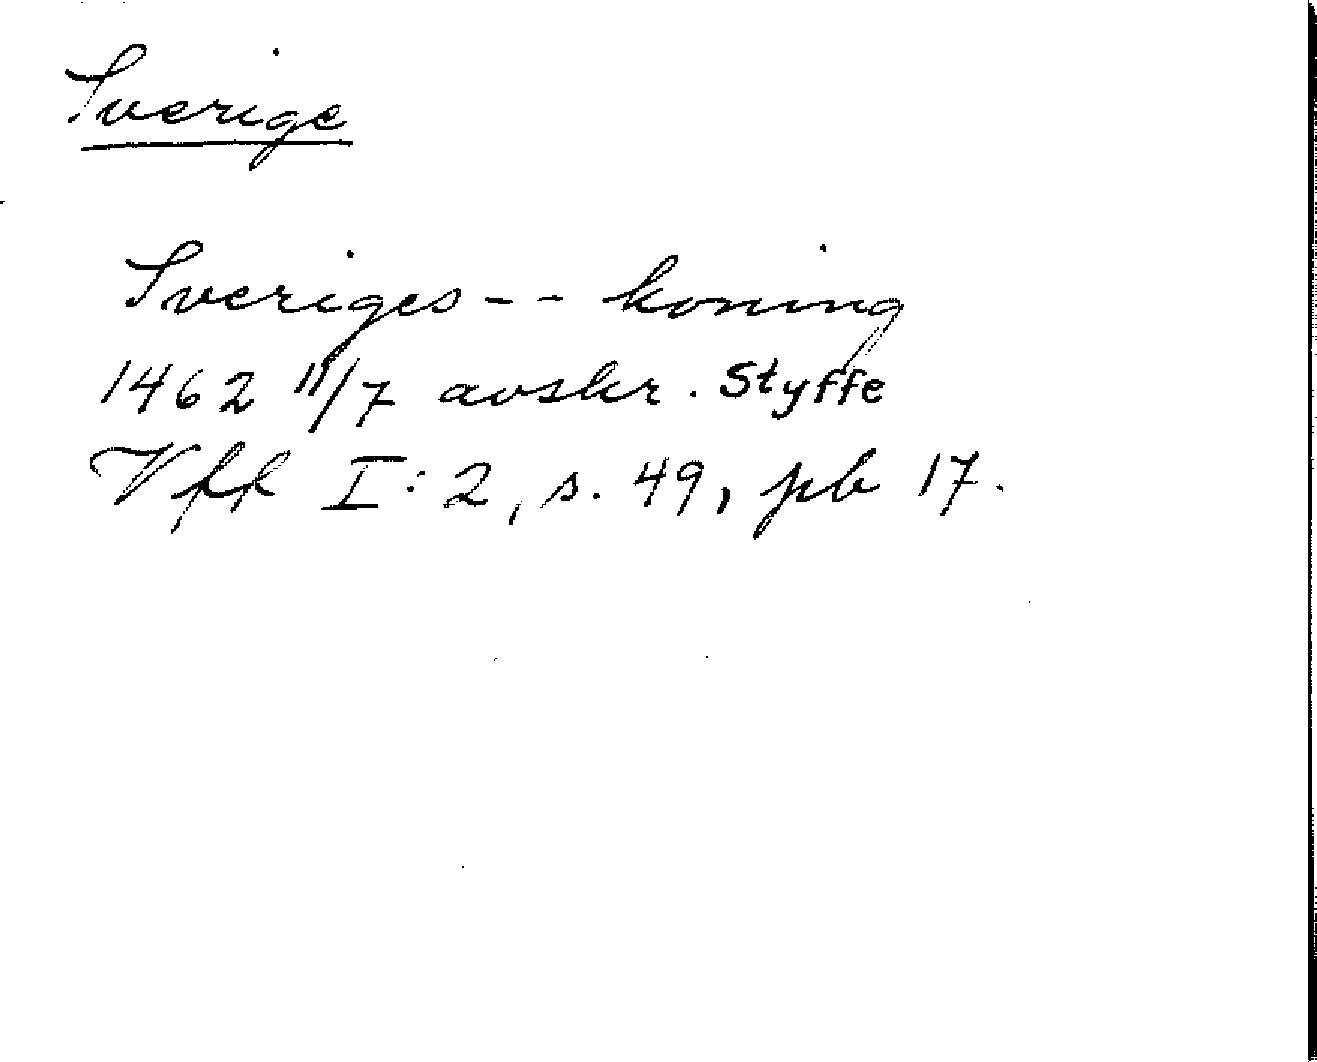 Sverige
Sveriges -- koning
1462 11/7 avskr. Styffe
Vff I:2, s. 49, pb 17.